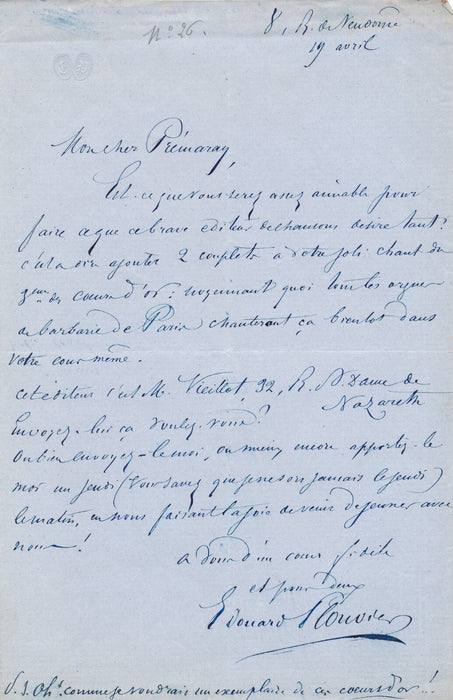 Nº 26.
8, R. de Vendôme
19 avril
Mon cher Prémaray,
Est-ce que vous serez assez aimable pour
faire ce que ce brave éditeur de chansons désire tant?
c'est à dire ajouter 2 couplets à votre joli chant du
3eme des coeurs d'or: moyennant quoi tous les orgues
de barbarie de Paris chanteront ça bientôt dans
votre cour même.
cet éditeur c'est M. Vieillot, 32, R. N. Dame de
Nazareth
Envoyez-lui ça voulez-vous?
Ou bien envoyez-le moi, ou mieux encore apportez-le
moi un jeudi (vous savez que je ne sors jamais le jeudi)
le matin, en nous faisant la joie de venir déjeuner avec
nous!
à vous d'un coeur fidèle
et pour deux
Edouard Plouvier
P. S. Oh! comme je voudrais un exemplaire de ces coeurs d'or...!